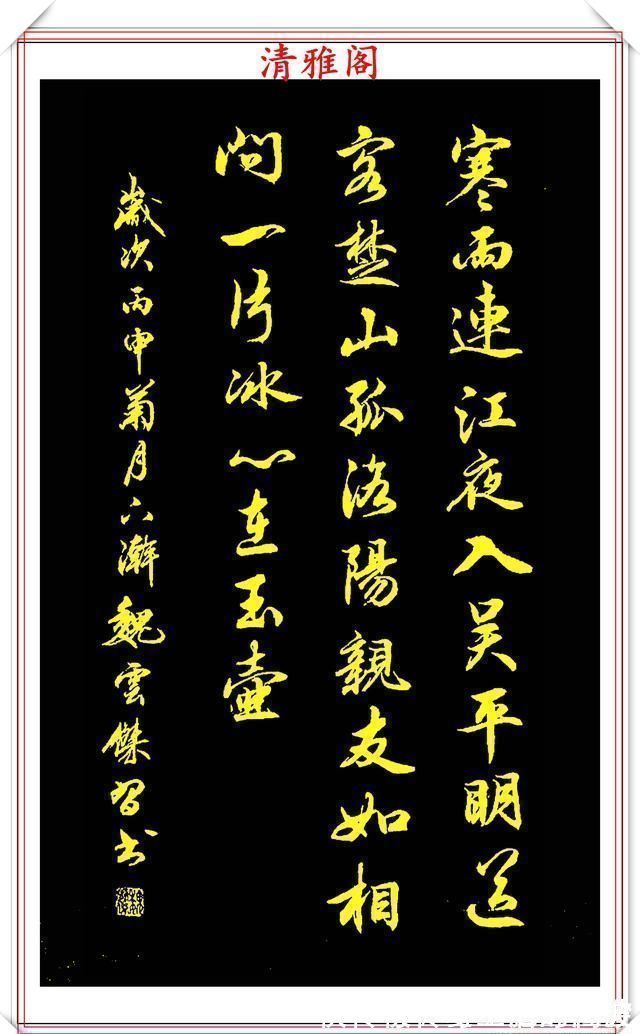 清雅阁
寒雨連江夜入吴平明送
客楚山孤洛陽親友如相
問一片冰心在玉壺
歲次丙申菊月下澣魏雲傑習书